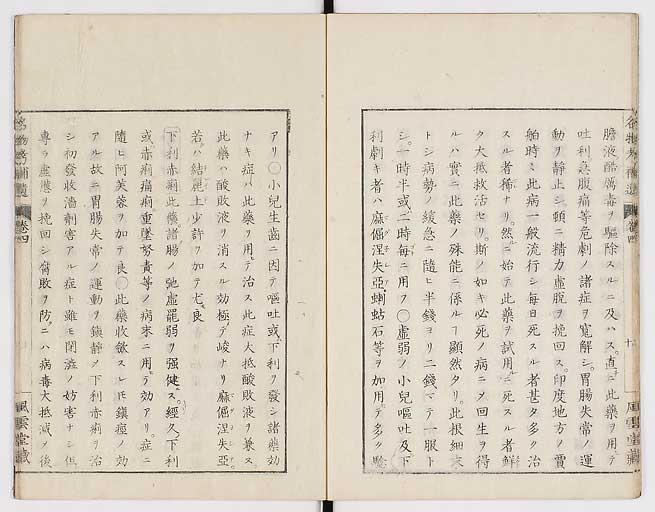 膽液酷厲毒ヲ驅除スルニ及ハス。直ニ此藥ヲ用テ
吐利急腹痛等危劇ノ諸症ヲ寬解シ。胃腸失常ノ運
動ヲ靜止シ頓ニ精力虛脫ヲ挽回ス。印度地方ノ賈
舶時ニ此病一般流行シ每日死スル者甚タ多ク治
スル者稀ナリ。然ニ始テ此藥ヲ試用ニ死スル者鮮
ク大抵救活セリ。斯ノ如キ必死ノ病ニタ回生ヲ得
ルハ實ニ此藥ノ殊能ニ係ルヿ顯然タリ。此根細末
トシ病勢ノ緩急ニ隨ヒ半錢ヨリ二錢マテ一服ト
シ。一時半或二時每ニ用フ〇虛弱ノ小兒嘔吐及下
利劇キ者ハ麻倔涅失亞。蝲蛄石等ヲ加用テ多ク驗
アリ〇小兒生齒ニ因テ嘔吐或下利ヲ發シ諸藥効
ナキ症ハ此藥ヲ用テ治ス此症大抵酸敗液ヲ兼ス
此藥ハ酸敗液ヲ消スル効極テ峻ナリ麻倔涅失亞
若ハ結麗土少許ヲ加テ尤良
下利赤痢此藥諸腸ノ弛虛罷弱ヲ强健ス。經久下利
或赤痢痛痢重墜努責等ノ病末ニ用テ効アリ。症ニ
隨ヒ阿芙蓉ヲ加テ良〇此藥收斂スレ𪜈鎭瘈ノ効
アル故ニ胃腸失常ノ運動ヲ鎭靜ノ下利赤痢ヲ治
シ初發收濇刺害アル症ト雖モ閉澁ノ妨害ナシ但
專ラ虛憊ヲ挽回シ腐敗ヲ防ニハ病毒大抵減ノ後
卷四
風雲堂藏